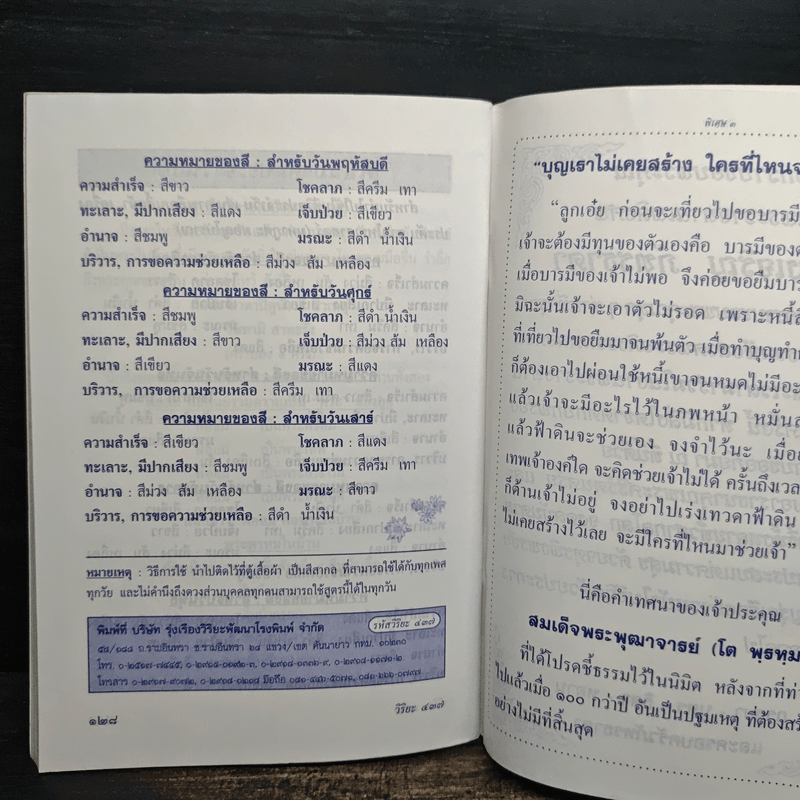 ความหมายของสี : สำหรับวันพฤหัสบดี
ความสำเร็จ : สีขาว โชคลาภ : สีครีม เทา
ทะเลาะ, มีปากเสียง : สีแดง เจ็บป่วย : สีเขียว
อำนาจ : สีชมพู มรณะ : สีดำ น้ำเงิน
บริวาร, การขอความช่วยเหลือ : สีม่วง ส้ม เหลือง
ความหมายของสี : สำหรับวันศุกร์
ความสำเร็จ : สีชมพู โชคลาภ : สีดำ น้ำเงิน
ทะเลาะ, มีปากเสียง : สีขาว เจ็บป่วย : สีม่วง ส้ม เหลือง
อำนาจ : สีเขียว มรณะ : สีแดง
บริวาร, การขอความช่วยเหลือ : สีครีม เทา
ความหมายของสี : สำหรับวันเสาร์
ความสำเร็จ : สีเขียว โชคลาภ : สีแดง
ทะเลาะ, มีปากเสียง : สีชมพู เจ็บป่วย : สีครีม เทา
อำนาจ : สีม่วง ส้ม เหลือง มรณะ : สีขาว
บริวาร, การขอความช่วยเหลือ : สีดำ น้ำเงิน
หมายเหตุ : วิธีการใช้ นำไปติดไว้ที่ตู้เสื้อผ้า เป็นสีสากล ที่สามารถใช้ได้กับทุกเพศ
ทุกวัย และไม่คำนึงถึงดวงส่วนบุคคลทุกคนสามารถใช้สูตรนี้ได้ในทุกวัน
พิมพ์ที่ บริษัท รุ่งเรืองวิริยะพัฒนาโรงพิมพ์ จำกัด รหัสวิริยะ ๔๓๗
ถ.รามอินทรา ซ.รามอินทรา ๖๘ แขวง/เขต คันนายาว กทม. ๑๐๒๓๐
๑๒๘ วิริยะ ๔๓๗
พิเศษ ๓
"บุญเราไม่เคยสร้าง ใครที่ไหนจ
"ลูกเอ๋ย ก่อนจะเที่ยวไปขอบารมี
เจ้าจะต้องมีทุนของตัวเองคือ บารมีของต
เมื่อบารมีของเจ้าไม่พอ จึงค่อยขอยืมบาร
มิฉะนั้นเจ้าจะเอาตัวไม่รอด เพราะหนี้สิ
ที่เที่ยวไปขอยืมมาจนพ้นตัว เมื่อทำบุญทำก
ก็ต้องเอาไปผ่อนใช้หนี้เขาจนหมดไม่มีอะ
แล้วเจ้าจะมีอะไรไว้ในภพหน้า หมั่นส
แล้วฟ้าดินจะช่วยเอง จงจำไว้นะ เมื่อย
เทพเจ้าองค์ใด จะคิดช่วยเจ้าไม่ได้ ครั้นถึงเวล
ก็ด้านเจ้าไม่อยู่ จงอย่าไปเร่งเทวดาฟ้าดิน
ไม่เคยสร้างไว้เลย จะมีใครที่ไหนมาช่วยเจ้า"
นี่คือคำเทศนาของเจ้าประคุณ
สมเด็จพระพุฒาจารย์ (โต พฺรหฺม
ที่ได้โปรดชี้ธรรมไว้ในนิมิต หลังจากที่ท่า
ไปแล้วเมื่อ ๑๐๐ กว่าปี อันเป็นปฐมเหตุ ที่ต้องสร้
อย่างไม่มีที่สิ้นสุด